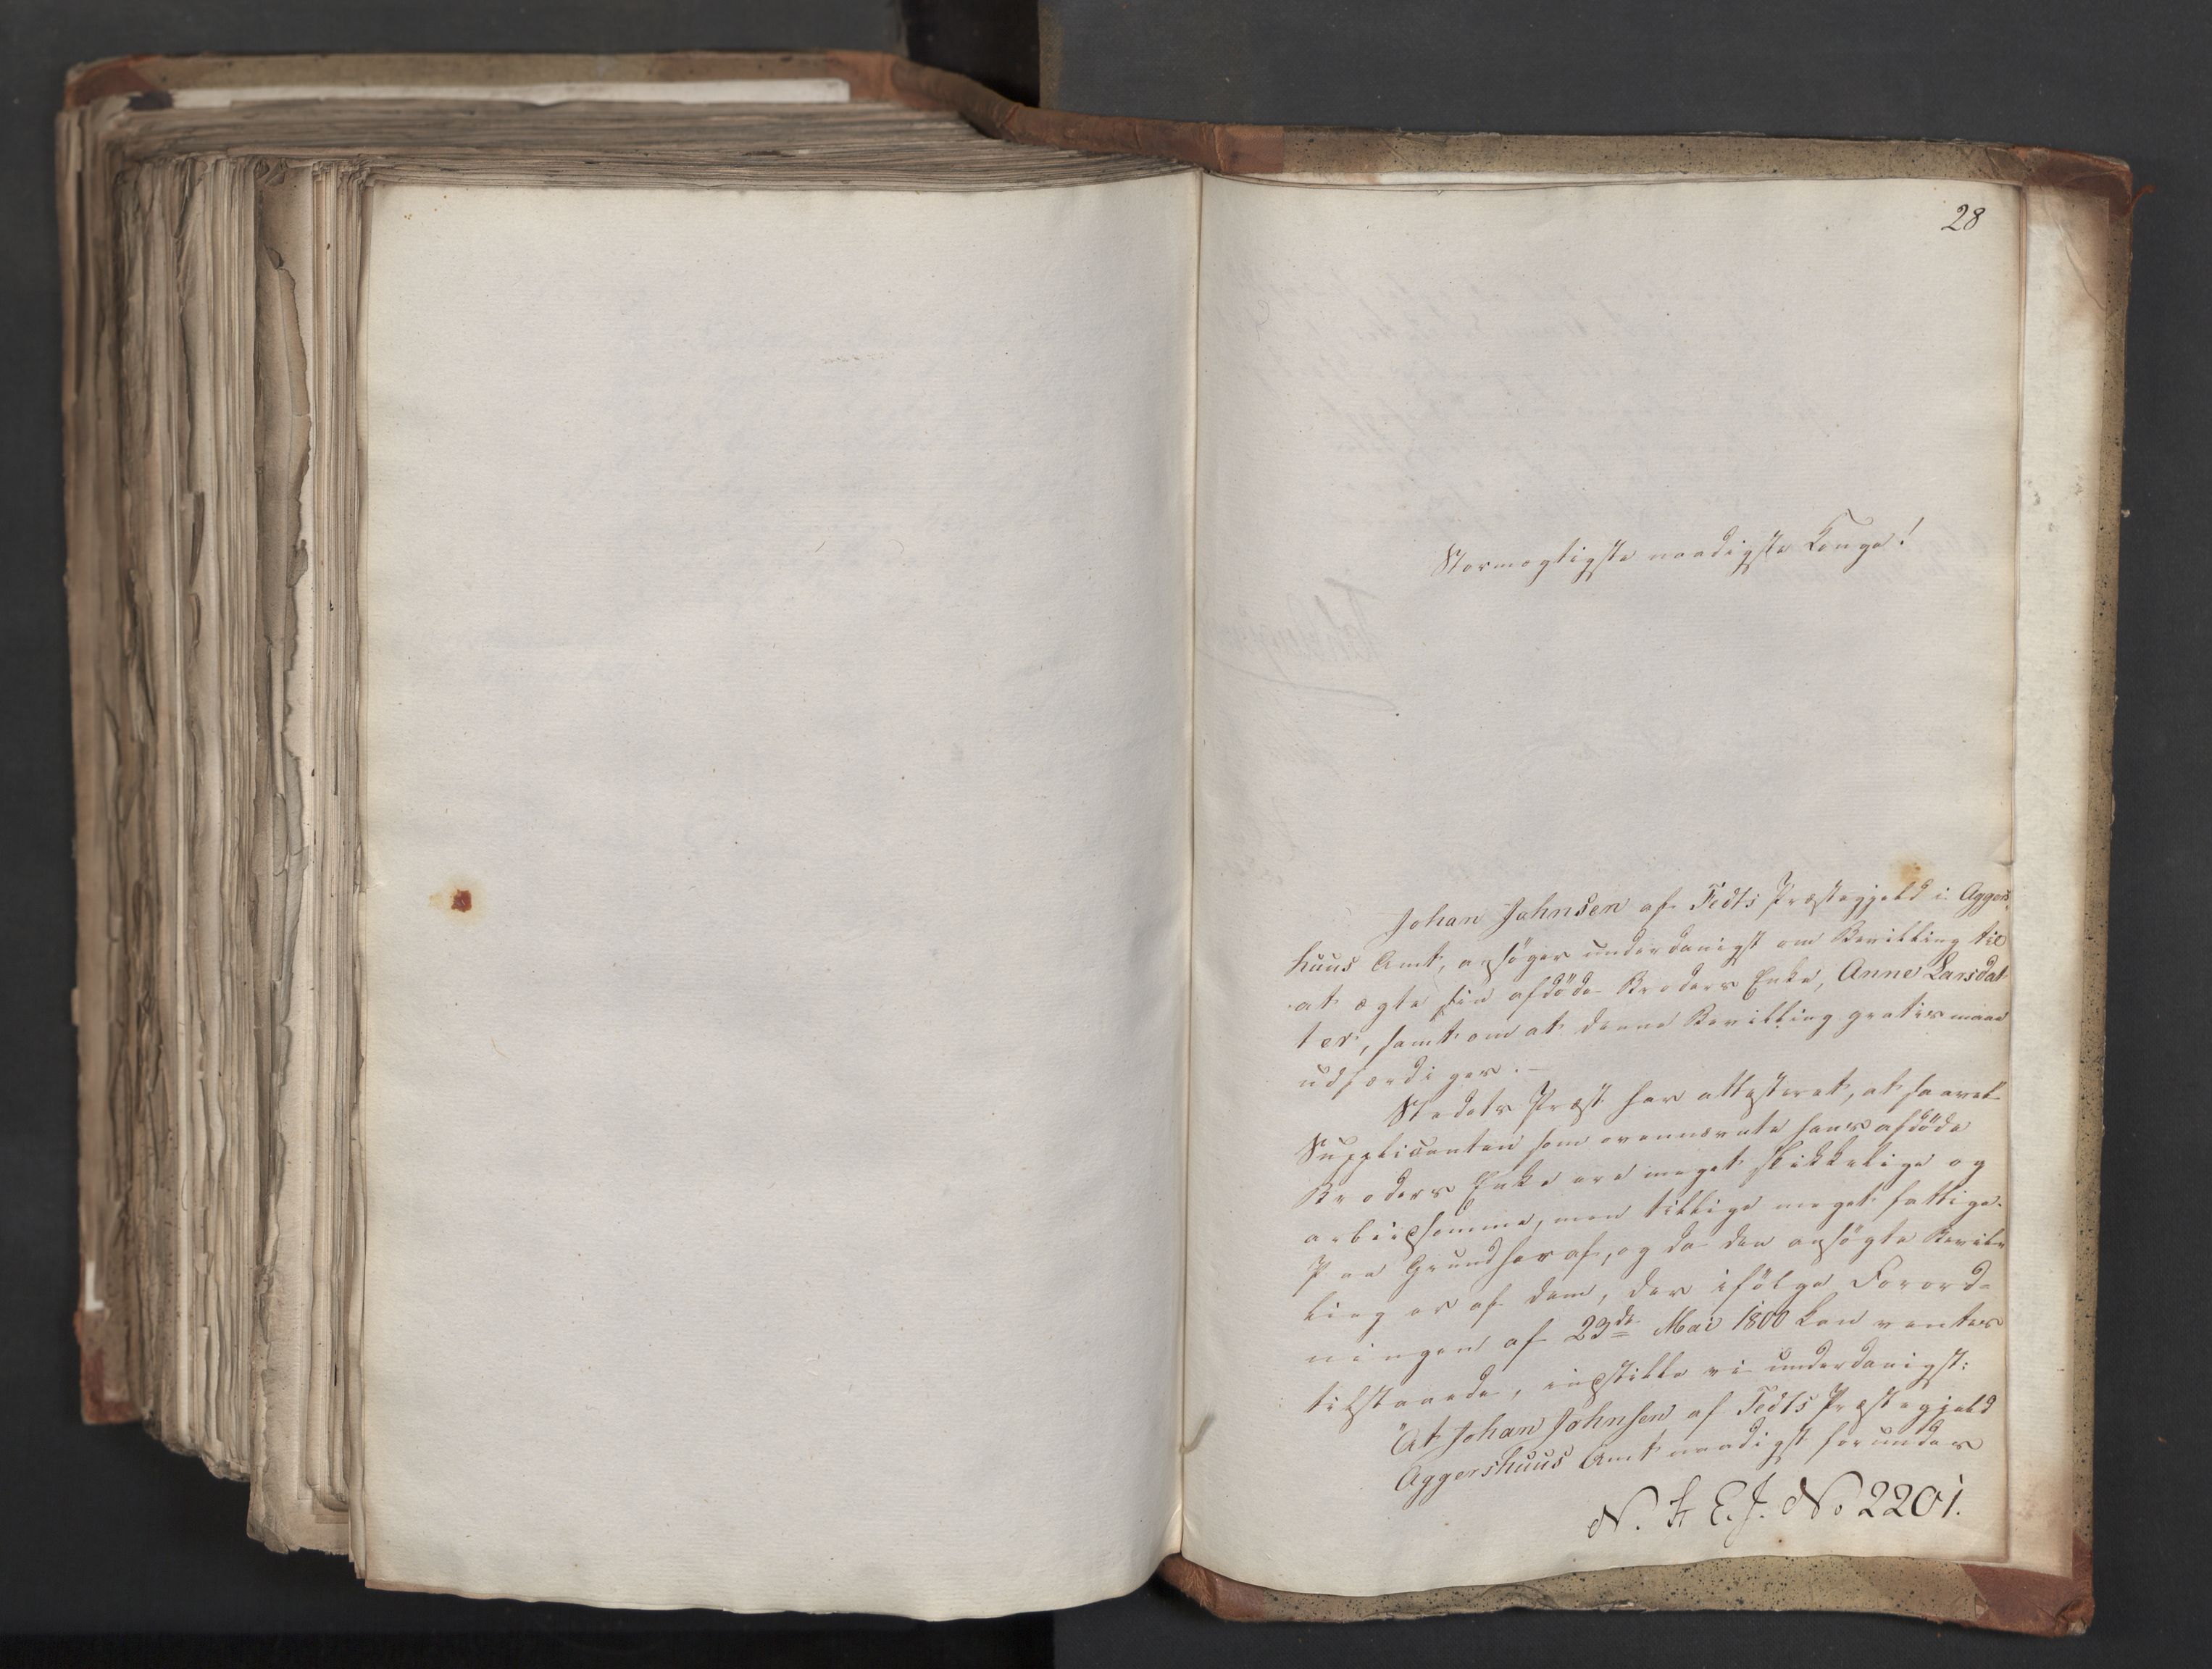 28
Stormægtigste naadigste Konge!
Johan Johnsen af Fedts Præstegjeld i Aggers-
huus Amt, ansøger underdanigst om Bevilling til
at ægte sin afdøde Broders Enke, Anne Larsdat-
ter, samt om at denne Bevilling gratis maae
udfærdiges. –
Stedets Præst har attesteret, at saavel
Supplicanten som ovennævnte hans afdøde
Broders Enke ere meget skikkelige og
arbeidsomme, men tillige meget fattige.
Paa Grund heraf, og da den ansøgte Bevil-
ling er af dem, der ifølge Forord-
ningen af 23de Mai 1800 kan ventes
tilstaaede, indstille vi underdanigst:
"At Johan Johnsen af Fedts Præstegjeld
Aggershuus Amt naadigst forundes
N. K. E. J. No 2201.